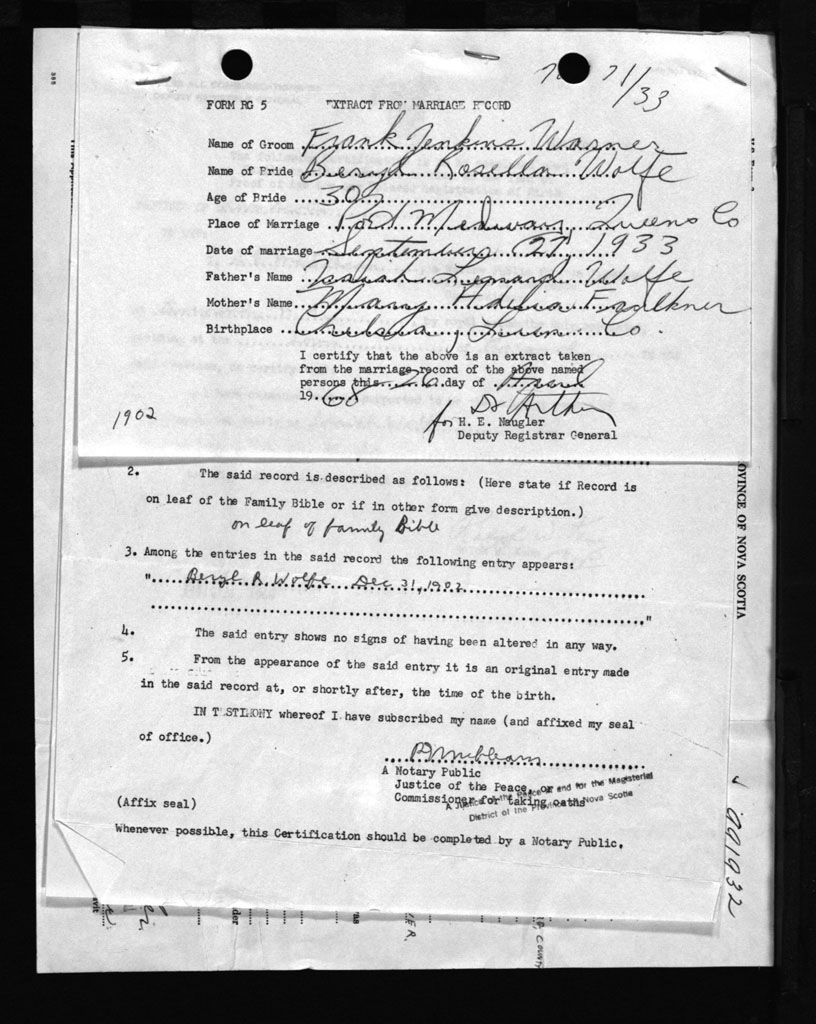 71/33
FORM RG 5 EXTRACT FROM MARRIAGE RECORD
Name of Groom Frank Jenkins Wagner
Name of Bride Beryl Rosella Wolfe
Age of Bride 30
Place of Marriage Port Medway Queens Co
Date of marriage September 27 1933
Father's Name Isaiah Leonard Wolfe
Mother's Name Mary Faulkner
Birthplace Queens Co.
I certify that the above is an extract taken
from the marriage record of the above named
persons this day of
19 68
1902
for H. E. Naugler
Deputy Registrar General
2. The said record is described as follows: (Here state if Record is
on leaf of the Family Bible or if in other form give description.)
on leaf of family Bible
3. Among the entries in the said record the following entry appears:
"..... Beryl R. Wolfe Dec 31, 1902 .....
....."
4. The said entry shows no signs of having been altered in any way.
5. From the appearance of the said entry it is an original entry made
in the said record at, or shortly after, the time of the birth.
IN TESTIMONY whereof I have subscribed my name (and affixed my seal
of office.)
A Notary Public
Justice of the Peace, or
Commissioner for taking oaths
A Justice of the Peace in and for the Magisterial
District of the Province of Nova Scotia
(Affix seal)
Whenever possible, this Certification should be completed by a Notary Public.
OVINCE OF NOVA SCOTIA
001932